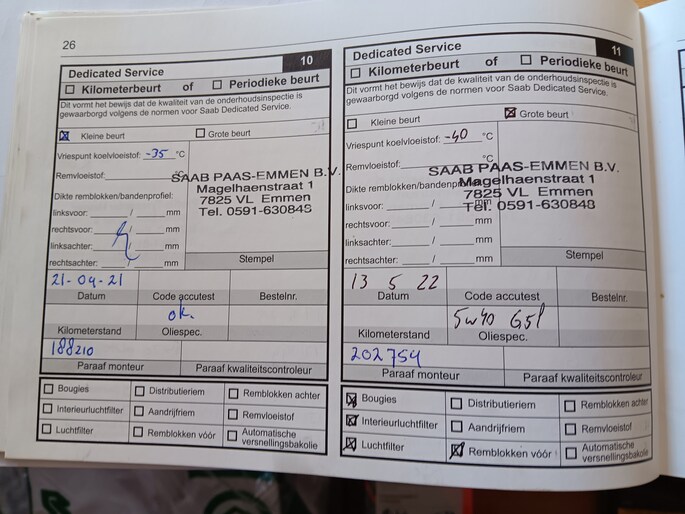 26
Dedicated Service 10
Kilometerbeurt of Periodieke beurt
Dit vormt het bewijs dat de kwaliteit van de onderhoudsinspectie is
gewaarborgd volgens de normen voor Saab Dedicated Service.
Kleine beurt Grote beurt
Vriespunt koelvloeistof: -35 °C
Remvloeistof: °C
SAAB PAAS-EMMEN B.V.
Magelhaenstraat 1
7825 VL Emmen
Tel. 0591-630848
Dikte remblokken/bandenprofiel:
linksvoor: / mm
rechtsvoor: / mm
linksachter: / mm
rechtsachter: / mm
Stempel
21-04-21
Datum Code accutest Bestelnr.
ok.
Kilometerstand Oliespec.
188210
Paraaf monteur Paraaf kwaliteitscontroleur
Bougies Distributieriem Remblokken achter
Interieurluchtfilter Aandrijfriem Remvloeistof
Luchtfilter Remblokken vóór Automatische
versnellingsbakolie
Dedicated Service 11
Kilometerbeurt of Periodieke beurt
Dit vormt het bewijs dat de kwaliteit van de onderhoudsinspectie is
gewaarborgd volgens de normen voor Saab Dedicated Service.
Kleine beurt Grote beurt
Vriespunt koelvloeistof: -40 °C
Remvloeistof: °C
SAAB PAAS-EMMEN B.V.
Magelhaenstraat 1
7825 VL Emmen
Tel. 0591-630848
Dikte remblokken/bandenprofiel:
linksvoor: / mm
rechtsvoor: / mm
linksachter: / mm
rechtsachter: / mm
Stempel
13 5 22
Datum Code accutest Bestelnr.
5w40 65l
Kilometerstand Oliespec.
202754
Paraaf monteur Paraaf kwaliteitscontroleur
Bougies Distributieriem Remblokken achter
Interieurluchtfilter Aandrijfriem Remvloeistof
Luchtfilter Remblokken vóór Automatische
versnellingsbakolie